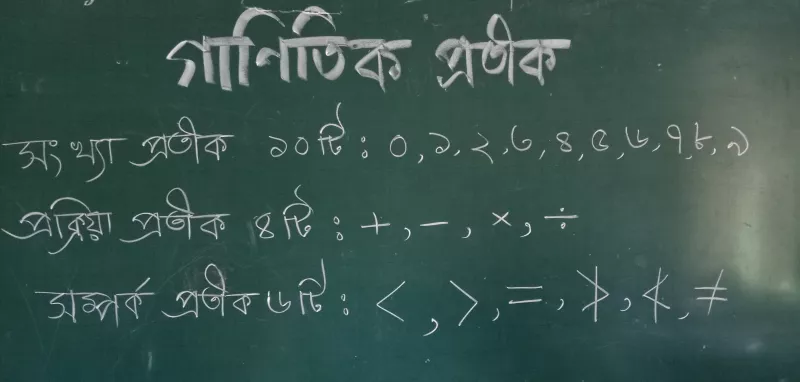 গাণিতিক প্রতীক
সংখ্যা প্রতীক ১০টি : ০, ১, ২, ৩, ৪, ৫, ৬, ৭, ৮, ৯
প্রক্রিয়া প্রতীক ৪টি : +, −, ×, ÷
সম্পর্ক প্রতীক ৬টি : <, >, =, ≯, ≮, ≠